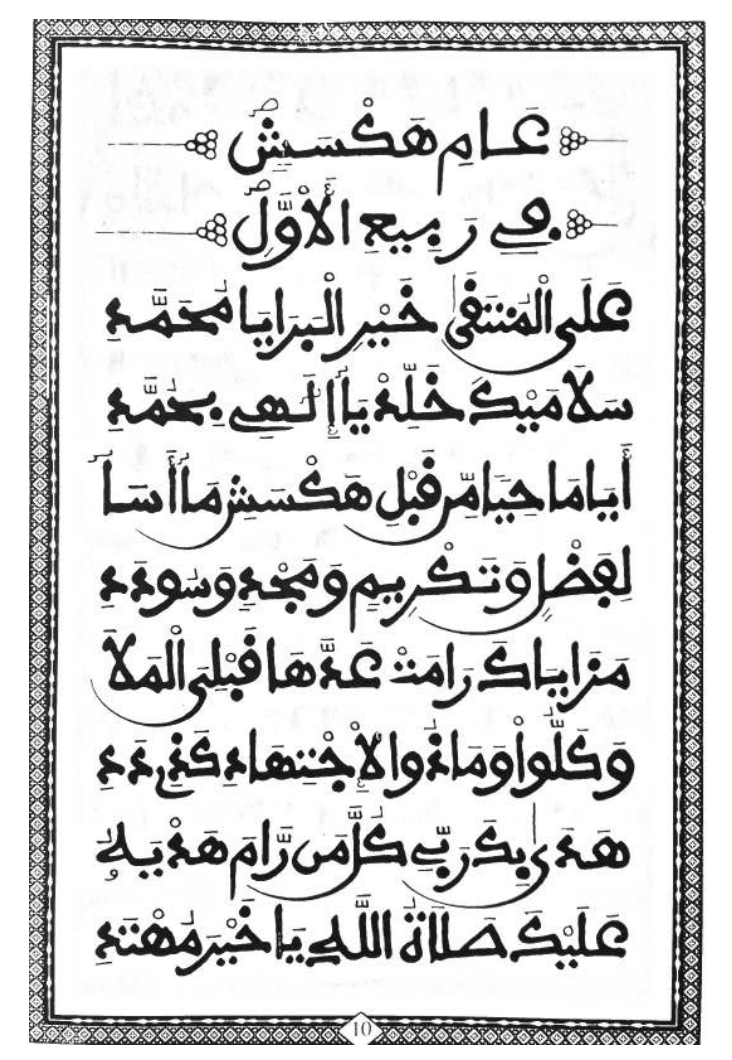 عَامِ هَكْسَشٍ
فِي رَبِيعِ الْأَوَّلِ
عَلَى الْمُنتَقَى خَيْرِ الْبَرَايَا مُحَمَّدِ
سَلَامَيْكَ خَلِّدْ يَا إِلَهِي بِحُمَّدِ
أَيَا مَاحِيًا مِّن قَبْلِ هَكْسَشٍ مَا أَسَا
لِفَضْلٍ وَتَكْرِيمٍ وَمَجْدٍ وَسُودَدِ
مَزَايَاكَ رَامَتْ عَدَّهَا قَبْلِيَ الْمَلَا
وَكَلُّواْ وَمَا ذُو الِاجْتِهَادِ كَذِي دَدِ
هَدَى بِكَ رَبِّي كُلَّ مَن رَّامَ هَدْيَهُ
عَلَيْكَ صَلَاةُ اللَّهِ يَا خَيْرَ مُهْتَدِ
10